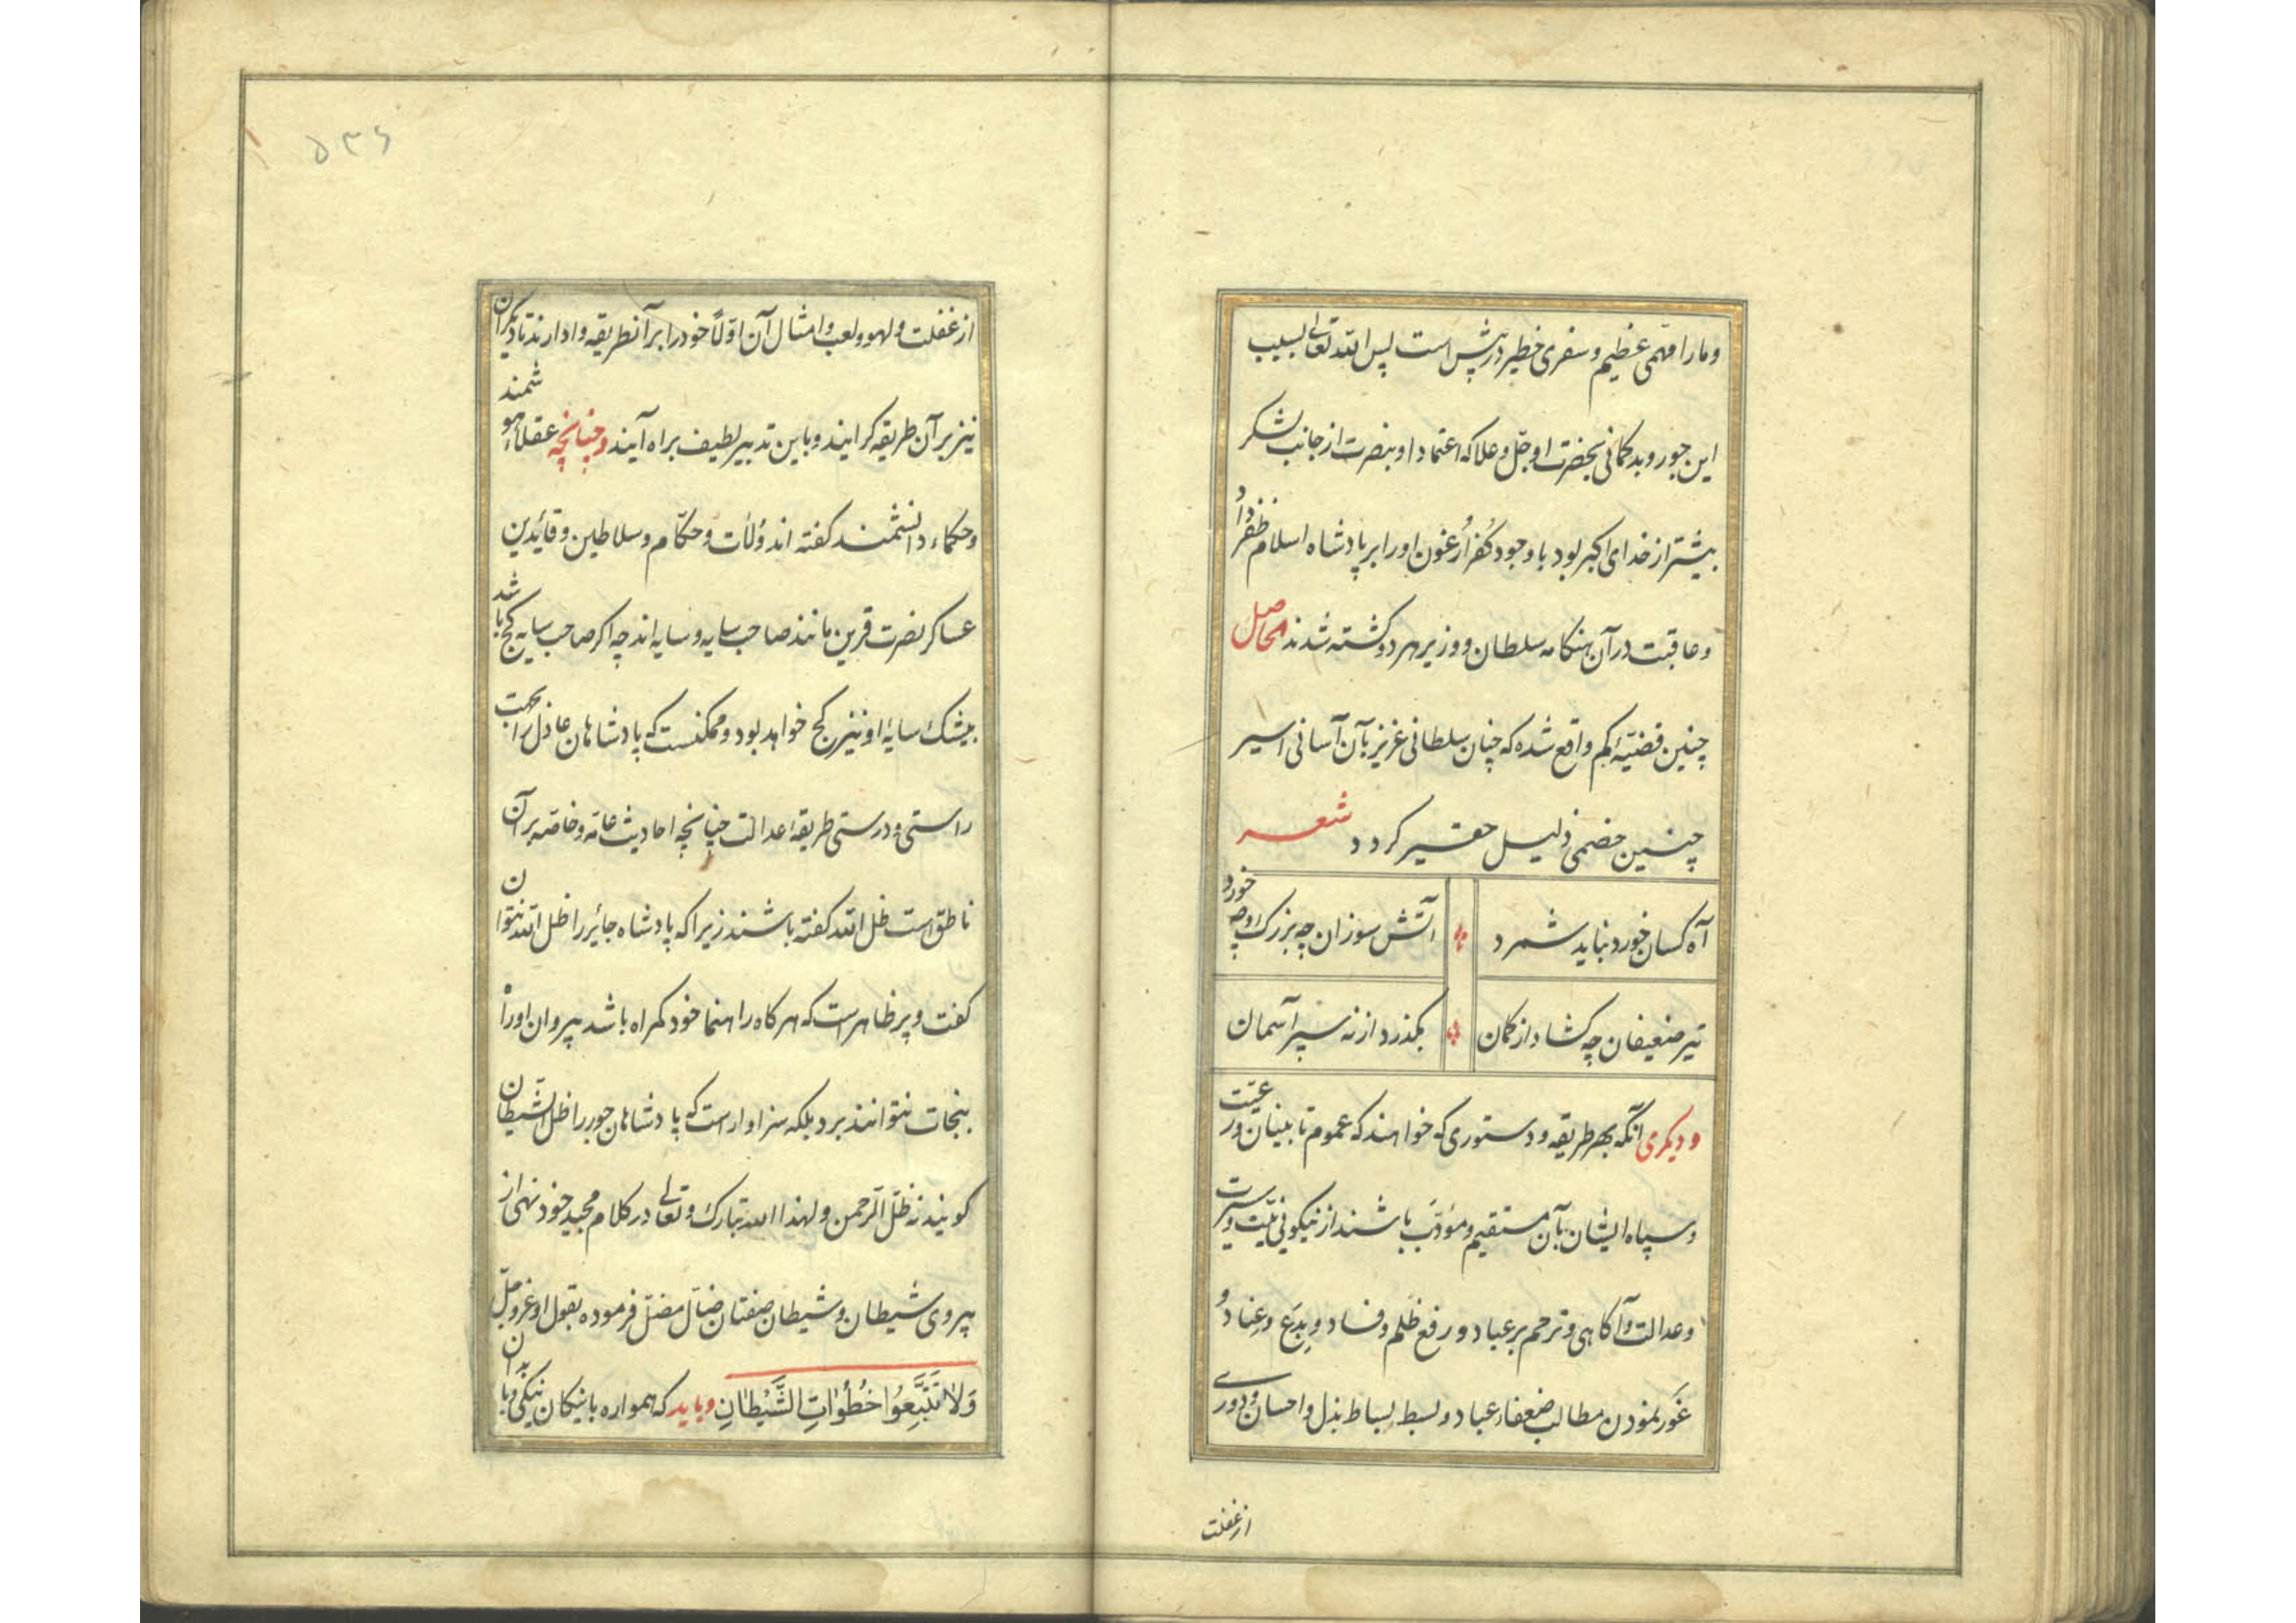 و ما را مهمّی عظیم و سفری خطیر در پیش است پس الله تعالی بسبب
این جور و بدکمانی بحضرت او جلّ و علا که اعتماد او بنصرت از جانب لشکر
بیشتر از خدای اکبر بود با وجود کفر ارغون او را بر پادشاه اسلام ظفر داد
و عاقبت در آن هنکامه سلطان و وزیر هر دو کشته شدند الحاصل
چنین قضیّه کم واقع شده که چنان سلطانی عزیز بآن آسانی اسیر
چنین خصمی ذلیل حقیر کردد شعر
آه کسان خورد نباید شمرد
آتش سوزان چه بزرک و چه خورد
تیر ضعیفان چه کشاد از کمان
بکذرد از نه سپر آسمان
و دیکری آنکه بهر طریقه و دستوری که خواهند که عموم تابینان و رعیّت
و سپاه ایشان بآن مستقیم و مؤدّب باشند از نیکوئی نیّت و سیرت
و عدالت و آکاهی و ترحم بر عباد و رفع ظلم و فساد و بدع و عناد و
غور نمودن مطالب ضعفاء عباد و بسط بساط بذل و احسان و دوری
از غفلت
۵۳۶
از غفلت و لهو و لعب و امثال آن اوّلاً خود را بر آنطریقه وادارند تا دیکران
نیز بر آن طریقه کرایند و باین تدبیر لطیف براه آیند و چنانچه عقلاء هوشمند
و حکماء دانشمند کفته اند وُلات و حکّام و سلاطین و قائدین
عساکر نصرت قرین مانند صاحب سایه و سایه اند چه اکر صاحب سایه کج باشد
بیشک سایهٔ او نیز کج خواهد بود و ممکنست که پادشاهان عادل را بجهت
راستی و درستی طریقهٔ عدالت چنانچه احادیث عامّه و خاصّه بر آن
ناطق است ظل الله کفته باشند زیرا که پادشاه جائر را ظل الله نتوان
کفت و پر ظاهر است که هر کاه راهنما خود کمراه باشد پیروان او را
بنجات نتوانند برد بلکه سزاوار است که پادشاهان جور را ظل الشّیطان
کویند نه ظلّ الرّحمن و لهذا الله تبارک و تعالی در کلام مجید خود نهی از
پیروی شیطان و شیطان صفتان ضالّ مضلّ فرموده بقول او عز و جلّ
وَلاٰ تَتَّبِعُوا خُطُوٰاتِ الشَّیْطٰانِ و باید که همواره با نیکان نیکی و با بدان